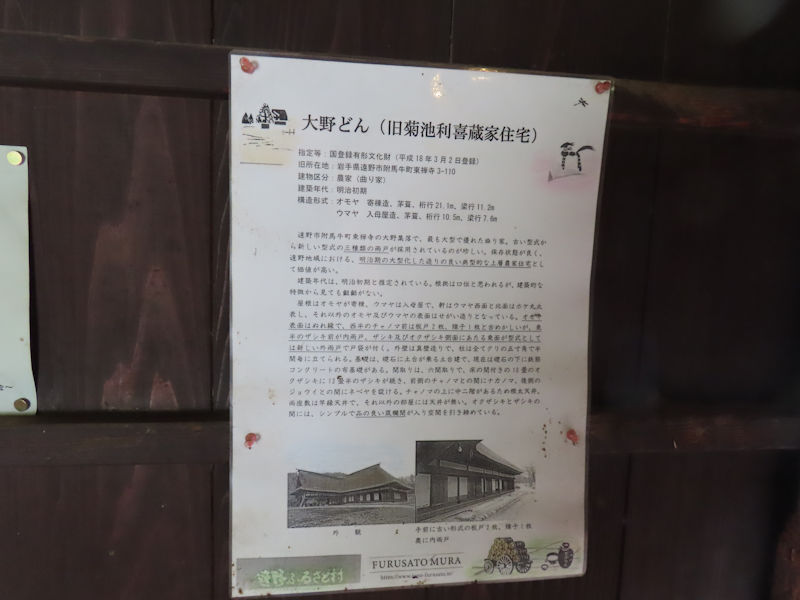 大野どん（旧菊池利喜蔵家住宅）
指定等：国登録有形文化財（平成18年3月2日登録）
旧所在地：岩手県遠野市附馬牛町東禅寺3-110
建物区分：農家（曲り家）
建築年代：明治初期
構造形式：オモヤ 寄棟造、茅葺、桁行21.1m、梁行11.2m
ウマヤ 入母屋造、茅葺、桁行10.5m、梁行7.6m
遠野市附馬牛町東禅寺の大野集落で、最も大型で優れた曲り家。古い型式か
ら新しい型式の三種類の雨戸が採用されているのが珍しい。保存状態が良く、
遠野地域における、明治期の大型化した造りの良い典型的な上層農家住宅とし
て価値が高い。
建築年代は、明治初期と推定されている。根拠は口伝と思われるが、建築的な
特徴から見ても齟齬がない。
屋根はオモヤが寄棟、ウマヤは入母屋で、軒はウマヤ西面と北面はホケ丸太
表し、それ以外のオモヤ及びウマヤの表面はせがい造りとなっている。オモヤ
表面はぬれ縁で、西半のチャノマ前は板戸2枚、障子1枚と古めかしいが、東
半のザシキ前が内雨戸、ザシキ及びオクザシキ側面にあたる東面が型式として
は新しい外雨戸で戸袋が付く。外壁は真壁造りで、柱は全てグリの五寸角で半
間毎に立てられる。基礎は、礎石に土台が乗る土台建で、現在は礎石の下に鉄筋
コンクリートの布基礎がある。間取りは、六間取りで、床の間付きの10畳のオ
クザシキに12畳半のザシキが続き、前側のチャノマとの間にナカノマ、後側の
ジョウイとの間にネベヤを設ける。チャノマの上に中二階があるため根太天井、
両座敷は竿縁天井で、それ以外の部屋には天井が無い。オクザシキとザシキの
間には、シンプルで品の良い筬欄間が入り空間を引き締めている。
外観
手前に古い形式の板戸2枚、障子1枚
奥に内雨戸
遠野ふるさと村
FURUSATO MURA